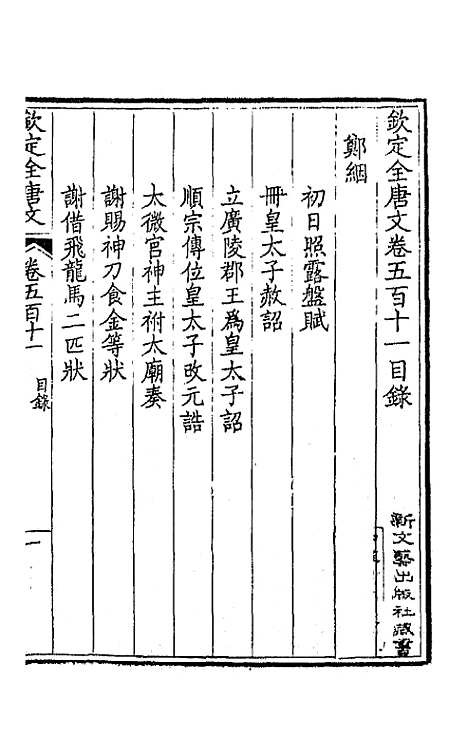 欽定全唐文卷五百十一目錄
鄭絪
初日照露盤賦
冊皇太子赦詔
立廣陵郡王爲皇太子詔
順宗傳位皇太子改元誥
太微宮神主祔太廟奏
謝賜神刀食金等狀
謝借飛龍馬二匹狀
欽定全唐文
卷五百十一
目錄
一
新文藝出版社藏書